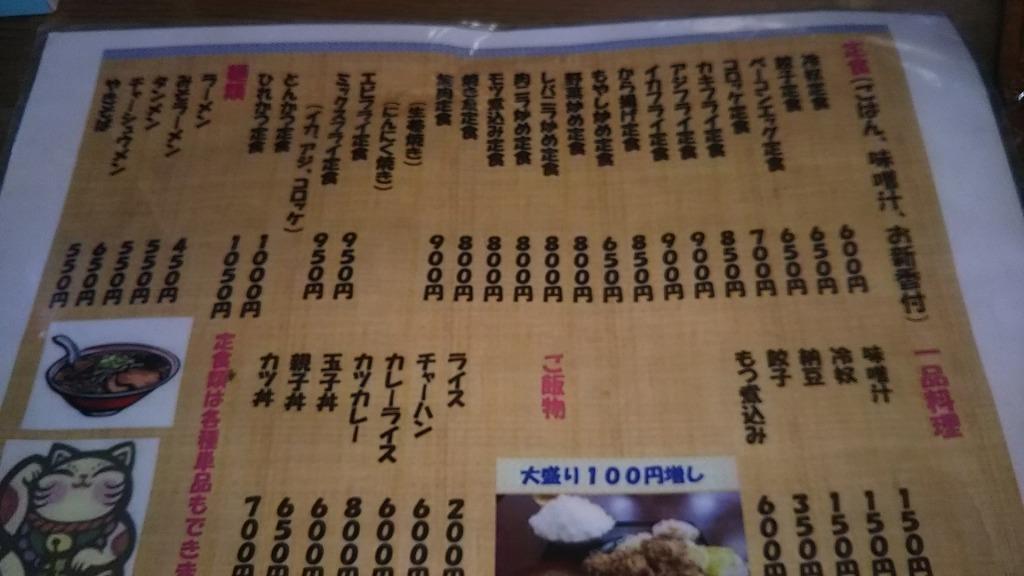 定食(ごはん、味噌汁、お新香付)
冷奴定食 600円
餃子定食 650円
ベーコンエッグ定食 650円
コロッケ定食 700円
カキフライ定食 850円
アジフライ定食 900円
イカフライ定食 900円
から揚げ定食 850円
もやし炒め定食 650円
野菜炒め定食 800円
レバニラ炒め定食 800円
肉ニラ炒め定食 800円
モツ煮込み定食 800円
焼き魚定食 800円
焼肉定食 900円
(生姜焼き)
(にんにく焼き)
エビフライ定食 950円
ミックスフライ定食 950円
(イカ、アジ、コロッケ)
とんかつ定食 1000円
ひれかつ定食 1050円
麺類
ラーメン 450円
みそラーメン 550円
タンメン 550円
チャーシュウメン 650円
やきそば 550円
一品料理
味噌汁 150円
冷奴 150円
納豆 150円
餃子 350円
もつ煮込み 600円
大盛り100円増し
ご飯物
ライス 200円
チャーハン 600円
カレーライス 600円
カツカレー 800円
玉子丼 600円
親子丼 650円
カツ丼 700円
定食類は各種単品もできま